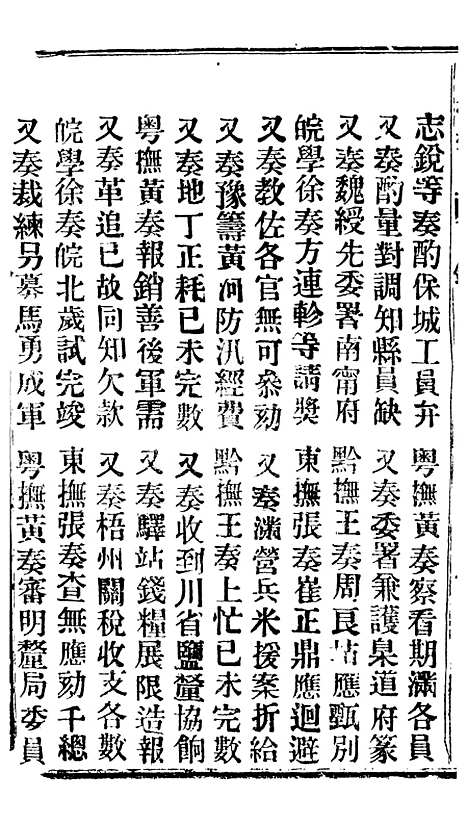 志銳等奏酌保城工員弁　粵撫黃奏察看期滿各員
又奏酌量對調知縣員缺　又奏委署兼護臬道府篆
又奏魏綬先委署南甯府　黔撫王奏周良祜應甄別
皖學徐奏方連軫等請獎　東撫張奏崔正鼎應迴避
又奏教佐各官無可叅劾　又奏滿營兵米援案折給
又奏豫籌黃河防汛經費　黔撫王奏上忙已未完數
又奏地丁正耗已未完數　又奏收到川省鹽釐協餉
粵撫黃奏報銷善後軍需　又奏驛站錢糧展限造報
又奏革追已故同知欠款　又奏梧州關稅收支各數
皖學徐奏皖北歲試完竣　東撫張奏查無應劾千總
又奏裁練另募馬勇成軍　粵撫黃奏審明釐局委員